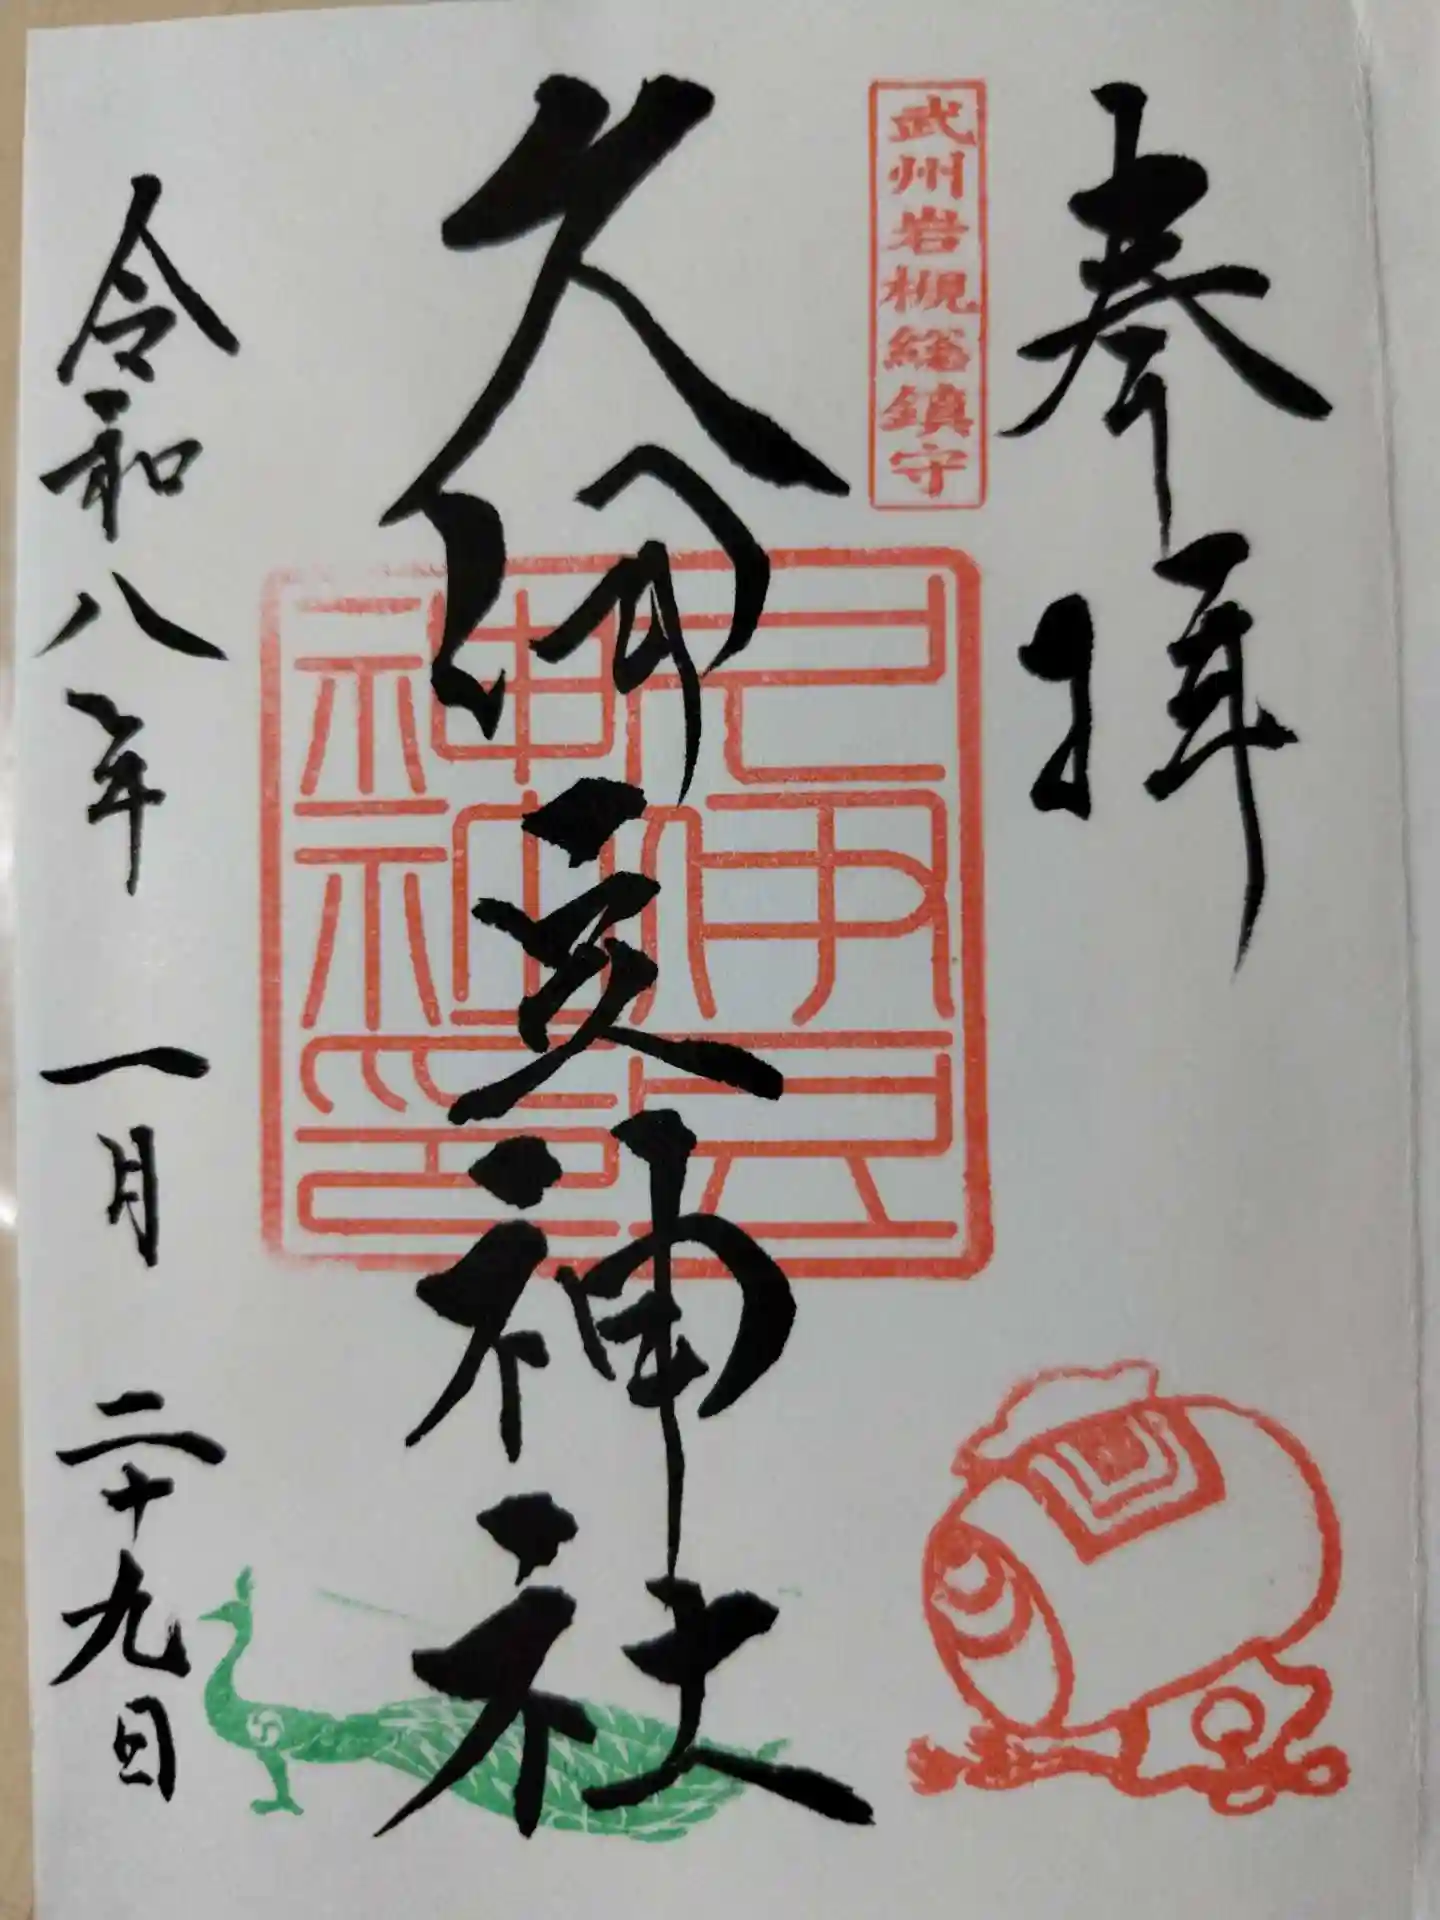 奉拝
武州岩槻総鎮守
久伊豆神社
久伊豆
神社印
令和八年一月二十九日